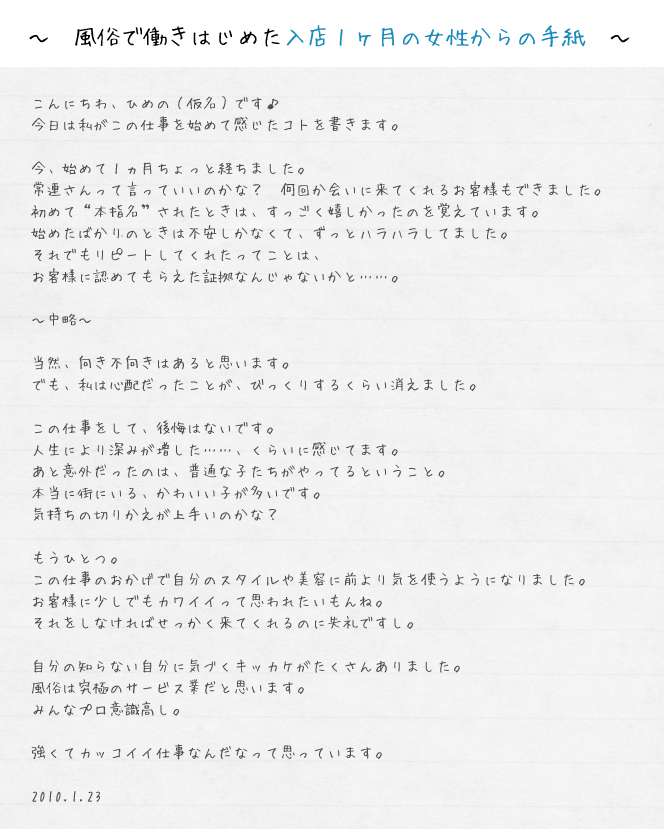 ～　風俗で働きはじめた入店１ヶ月の女性からの手紙　～
こんにちわ、ひめの（仮名）です♪
今日は私がこの仕事を始めて感じたコトを書きます。
今、始めて１ヵ月ちょっと経ちました。
常連さんって言っていいのかな？　何回か会いに来てくれるお客様もできました。
初めて“本指名”されたときは、すっごく嬉しかったのを覚えています。
始めたばかりのときは不安しかなくて、ずっとハラハラしてました。
それでもリピートしてくれたってことは、
お客様に認めてもらえた証拠なんじゃないかと……。
～中略～
当然、向き不向きはあると思います。
でも、私は心配だったことが、びっくりするくらい消えました。
この仕事をして、後悔はないです。
人生により深みが増した……、くらいに感じてます。
あと意外だったのは、普通な子たちがやってるということ。
本当に街にいる、かわいい子が多いです。
気持ちの切りかえが上手いのかな？
もうひとつ。
この仕事のおかげで自分のスタイルや美容に前より気を使うようになりました。
お客様に少しでもカワイイって思われたいもんね。
それをしなければせっかく来てくれるのに失礼ですし。
自分の知らない自分に気づくキッカケがたくさんありました。
風俗は究極のサービス業だと思います。
みんなプロ意識高し。
強くてカッコイイ仕事なんだなって思っています。
2010.1.23